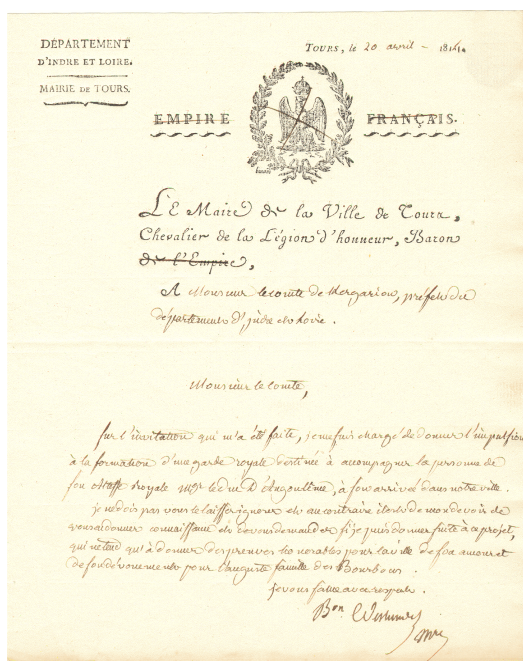 DÉPARTEMENT
D'INDRE ET LOIRE.
MAIRIE DE TOURS.
TOURS, le 20 avril - 1814.
EMPIRE FRANÇAIS.
LE Maire de la Ville de Tours,
Chevalier de la Légion d'honneur, Baron
de l'Empire,
A Monsieur le comte de Kergariou, préfet du
département d'Indre et Loire.
Monsieur le comte,
sur l'invitation qui m'a été faite, je me suis chargé de donner l'impulsion
à la formation d'une garde royale destinée à accompagner la personne de
son altesse royale Mgr le duc D'Angoulême, à son arrivée dans notre ville.
je ne dois pas vous le laisser ignorer et au contraire il est de mon devoir de
vous en donner connaissance et de vous demander si je puis donner suite à ce projet,
qui ne tend qu'à donner des preuves honorables pour la ville de son amour et
de son dévouement pour l'auguste famille des Bourbons.
je vous salue avec respect.
Bon